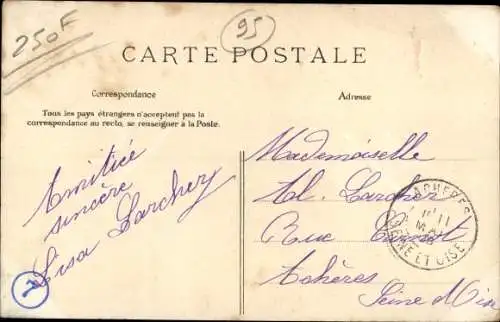 250F
95
CARTE POSTALE
Correspondance
Adresse
Tous les pays étrangers n'acceptent pas la
correspondance au recto, se renseigner à la Poste.
Amitiée
sincère
Lisa Larcher
Mademoiselle
Al. Larcher
Rue
Achères
Seine
ACHERES
11
MAI
SEINE ET OISE